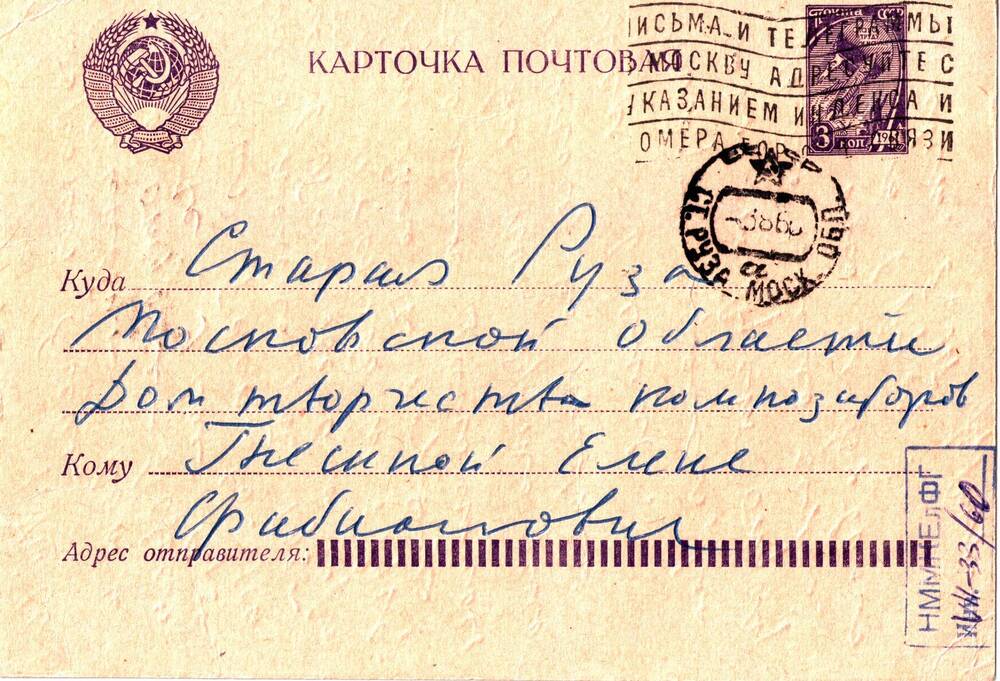 КАРТОЧКА ПОЧТОВАЯ
ПИСЬМА И ТЕЛЕГРАММЫ
МОСКВУ АДРЕСУЙТЕ С
УКАЗАНИЕМ ИНДЕКСА И
НОМЕРА СВЯЗИ
ПОЧТА СССР
3 КОП
СТ. РУЗА МОСК. ОБЛ.
Куда Старая Руза
Московской области
Дом творчества композиторов
Кому Гнесиной Елене
Фабиановне
Адрес отправителя:
НММКЕлФГ